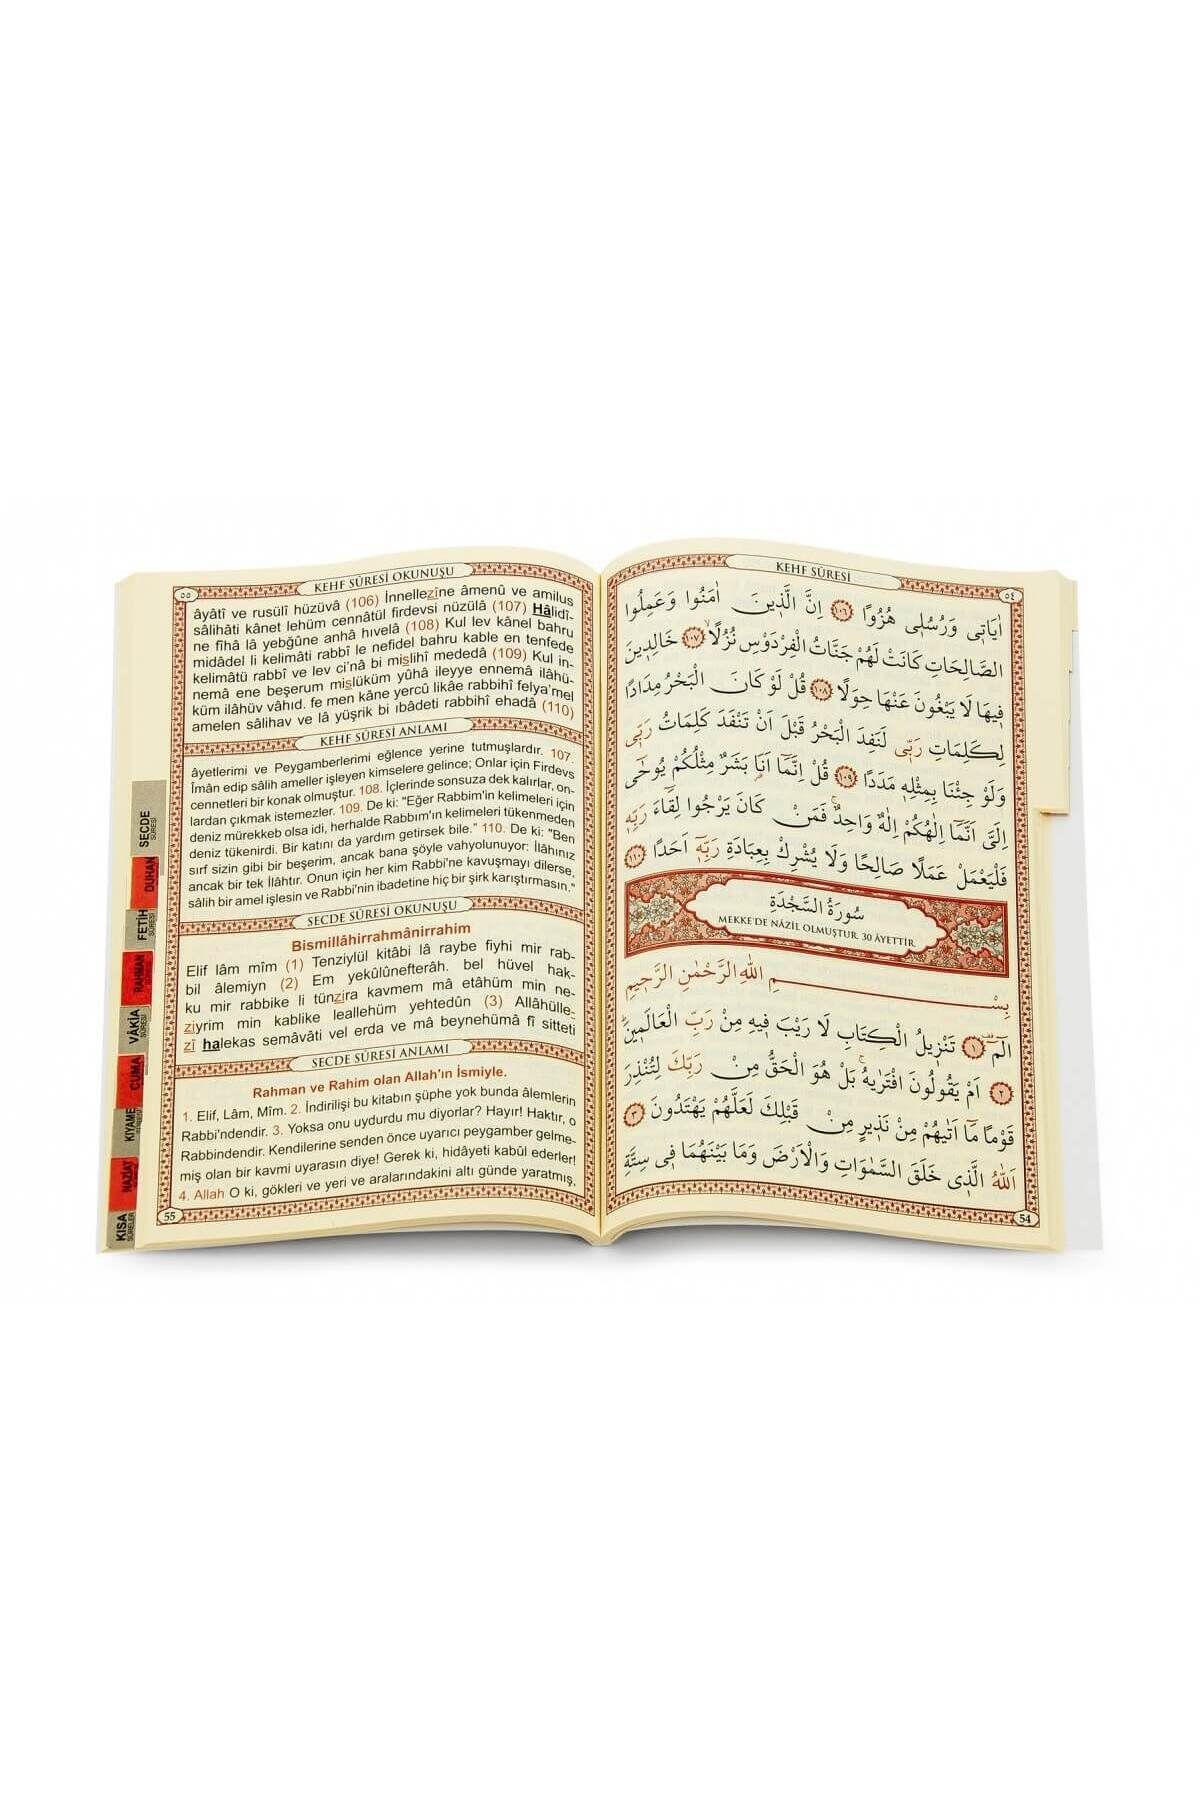 KEHF SÛRESİ
٥٤
اٰيَاتٖي وَرُسُلٖي هُزُوًا ﴿١٠٦﴾ اِنَّ الَّذٖينَ اٰمَنُوا وَعَمِلُوا
الصَّالِحَاتِ كَانَتْ لَهُمْ جَنَّاتُ الْفِرْدَوْسِ نُزُلًا ﴿١٠٧﴾ خَالِدٖينَ
فٖيهَا لَا يَبْغُونَ عَنْهَا حِوَلًا ﴿١٠٨﴾ قُلْ لَوْ كَانَ الْبَحْرُ مِدَادًا
لِكَلِمَاتِ رَبّٖي لَنَفِدَ الْبَحْرُ قَبْلَ اَنْ تَنْفَدَ كَلِمَاتُ رَبّٖي
وَلَوْ جِئْنَا بِمِثْلِهٖ مَدَدًا ﴿١٠٩﴾ قُلْ اِنَّمَٓا اَنَا۬ بَشَرٌ مِثْلُكُمْ يُوحٰٓى
اِلَيَّ اَنَّمَٓا اِلٰهُكُمْ اِلٰهٌ وَاحِدٌۚ فَمَنْ كَانَ يَرْجُوا لِقَٓاءَ رَبِّهٖ
فَلْيَعْمَلْ عَمَلًا صَالِحًا وَلَا يُشْرِكْ بِعِبَادَةِ رَبِّهٖٓ اَحَدًا ﴿١١٠﴾
سُورَةُ السَّجْدَةِ
MEKKE'DE NÂZİL OLMUŞTUR. 30 ÂYETTİR.
بِسْمِ اللّٰهِ الرَّحْمٰنِ الرَّحٖيمِ
الٓمٓ ﴿١﴾ تَنْزٖيلُ الْكِتَابِ لَا رَيْبَ فٖيهِ مِنْ رَبِّ الْعَالَمٖينَؕ
﴿٢﴾ اَمْ يَقُولُونَ افْتَرٰيهُۚ بَلْ هُوَ الْحَقُّ مِنْ رَبِّكَ لِتُنْذِرَ
قَوْمًا مَٓا اَتٰيهُمْ مِنْ نَذٖيرٍ مِنْ قَبْلِكَ لَعَلَّهُمْ يَهْتَدُونَ ﴿٣﴾
اَللّٰهُ الَّذٖي خَلَقَ السَّمٰوَاتِ وَالْاَرْضَ وَمَا بَيْنَهُمَا فٖي سِتَّةِ
54
KEHF SÛRESİ OKUNUŞU
٥٥
âyâtî ve rusülî hüzüvâ (106) İnnellezîne âmenû ve amilus
sâlihâti kânet lehüm cennâtül firdevsi nüzülâ (107) Hâlidî-
ne fîhâ lâ yebğûne anhâ hıvelâ (108) Kul lev kânel bahru
midâdel li kelimâti rabbî le nefidel bahru kable en tenfede
kelimâtü rabbî ve lev ci'nâ bi mislihî mededâ (109) Kul in-
nemâ ene beşerum mislüküm yûhâ ileyye ennemâ ilâhü-
küm ilâhüv vâhıd. fe men kâne yercû likâe rabbihî felya'mel
amelen sâlihav ve lâ yüşrik bi ıbâdeti rabbihî ehadâ (110)
KEHF SÛRESİ ANLAMI
âyetlerimi ve Peygamberlerimi eğlence yerine tutmuşlardır. 107.
İmân edip sâlih ameller işleyen kimselere gelince; Onlar için Firdevs
cennetleri bir konak olmuştur. 108. İçlerinde sonsuza dek kalırlar, on-
lardan çıkmak istemezler. 109. De ki: "Eğer Rabbim'in kelimeleri için
deniz mürekkeb olsa idi, herhalde Rabbım'ın kelimeleri tükenmeden
deniz tükenirdi. Bir katını da yardım getirsek bile." 110. De ki: "Ben
sırf sizin gibi bir beşerim, ancak bana şöyle vahyolunuyor: İlâhınız
ancak bir tek İlâhtır. Onun için her kim Rabbi'ne kavuşmayı dilerse,
sâlih bir amel işlesin ve Rabbi'nin ibadetine hiç bir şirk karıştırmasın."
SECDE SÛRESİ OKUNUŞU
Bismillâhirrahmânirrahim
Elif lâm mîm (1) Tenziylül kitâbi lâ raybe fiyhi mir rab-
bil âlemiyn (2) Em yekûlûnefterâh. bel hüvel hak-
ku mir rabbike li tünzira kavmem mâ etâhüm min ne-
ziyrim min kablike leallehüm yehtedûn (3) Allâhülle-
zî halekas semâvâti vel erda ve mâ beynehümâ fî sitteti
SECDE SÛRESİ ANLAMI
Rahman ve Rahim olan Allah'ın İsmiyle.
1. Elif, Lâm, Mîm. 2. İndirilişi bu kitabın şüphe yok bunda âlemlerin
Rabbi'ndendir. 3. Yoksa onu uydurdu mu diyorlar? Hayır! Haktır, o
Rabbindendir. Kendilerine senden önce uyarıcı peygamber gelme-
miş olan bir kavmi uyarasın diye! Gerek ki, hidâyeti kabûl ederler!
4. Allah O ki, gökleri ve yeri ve aralarındakini altı günde yaratmış,
55
SECDE
SÛRESİ
DUHAN
FETİH
SÛRESİ
RAHMAN
VÂKIA
SÛRESİ
CUMA
KIYAME
NAZİAT
KISA
SÛRELER